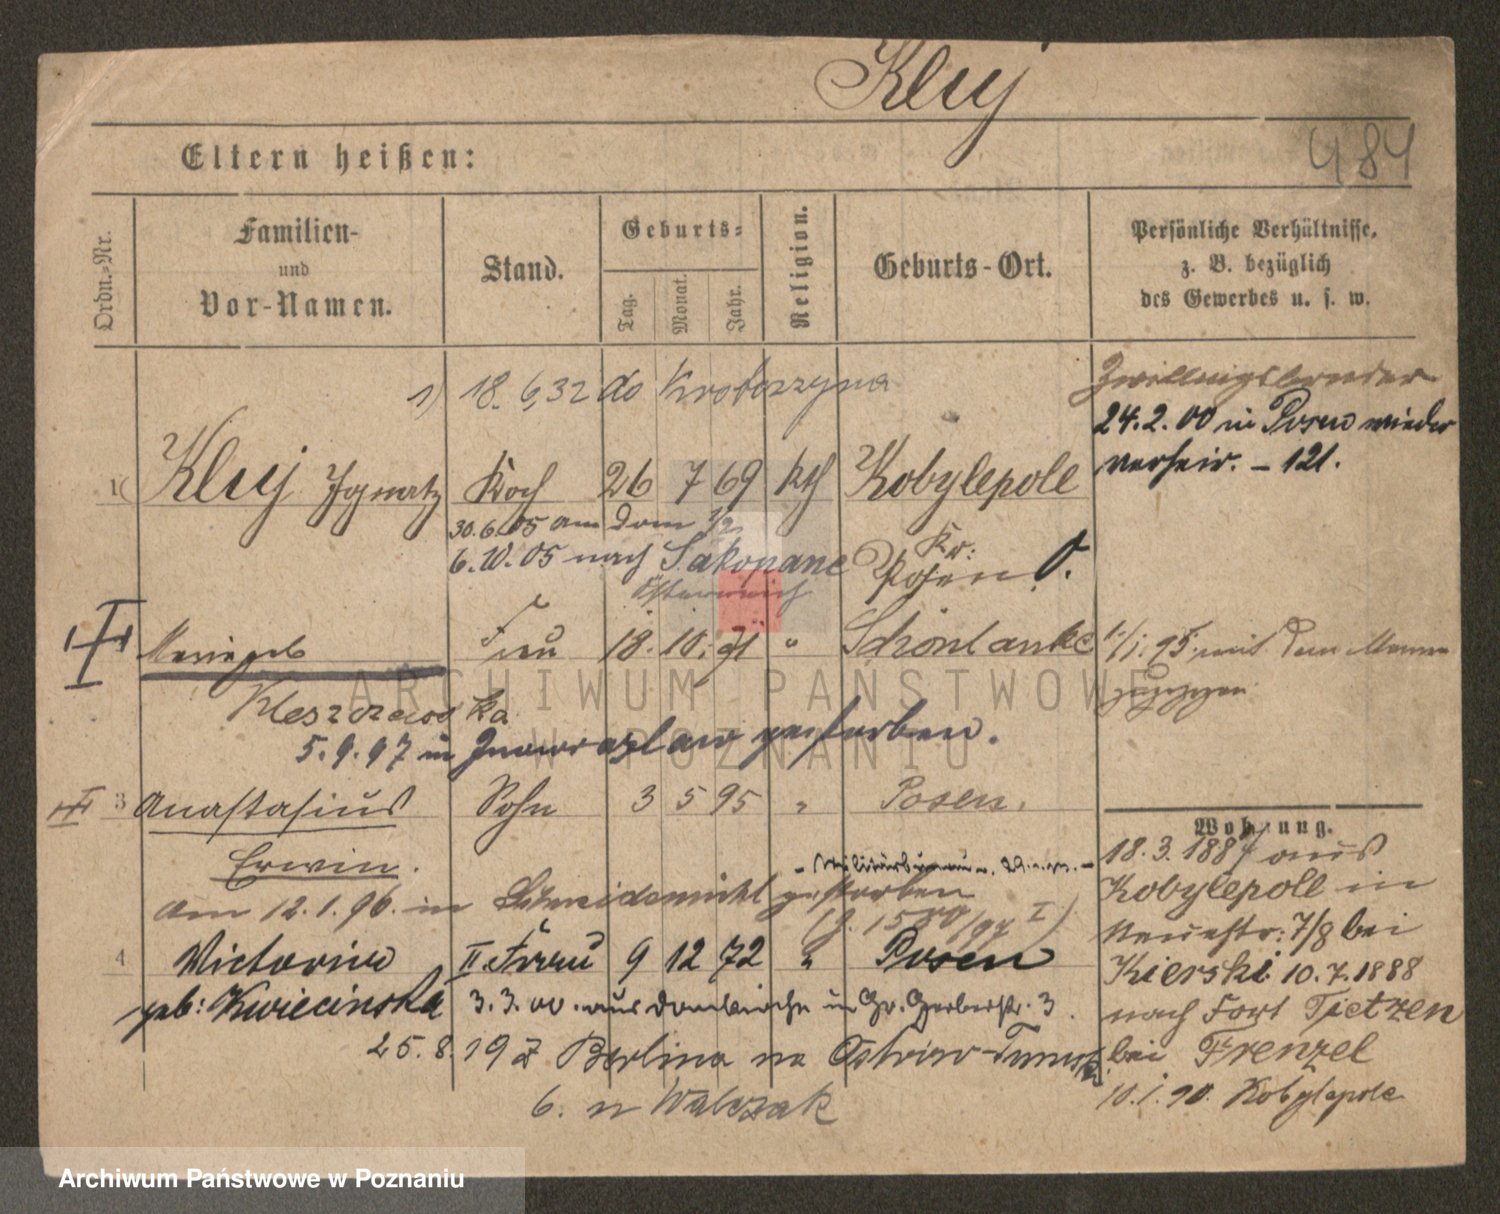 Kluj
Eltern heißen:
484
Ordn.-Nr.
Familien-
und
Vor-Namen.
Stand.
Geburts-
Tag.
Monat.
Jahr.
Religion.
Geburts-Ort.
Persönliche Verhältnisse,
z. B. bezüglich
des Gewerbes u. s. w.
1) 18. 6. 32 do Krotoszyna
Zwillingsbruder
24. 2. 00 in Posen wieder
verheir. - 121.
1 Kluj Ignatz Koch 26 7 69 kth Kobylepole
30. 6. 05 am Dom 1/2
6. 10. 05 nach Sakopane
Österreich
Kr:
Posen O.
Frau 18. 10. 71 " Schönlanke
1/1. 95. mit dem Manne
zugezogen
Kleszczewska
5. 9. 97 in Inowrazlaw gestorben.
3 Anastasius Sohn 3 5 95 " Posen.
Erwin.
Wohnung.
am 12. 1. 96. in Schneidemühl gestorben
4 Victoria II. Frau 9 12 72 " Posen
geb: Kwiecinska 3. 3. 00. aus Domkirche in Gr. Gerberstr. 3.
25. 8. 19 z Berlina na Ostrów-Tumski
6. n Walczak
18. 3. 1887 aus
Kobylepoll in
Neuestr: 7/8 bei
Kierski. 10. 7. 1888
nach Fort Tietzen
bei Frenzel
10. 1. 90. Kobylepole
ARCHIWUM PAŃSTWOWE
W POZNANIU
Archiwum Państwowe w Poznaniu